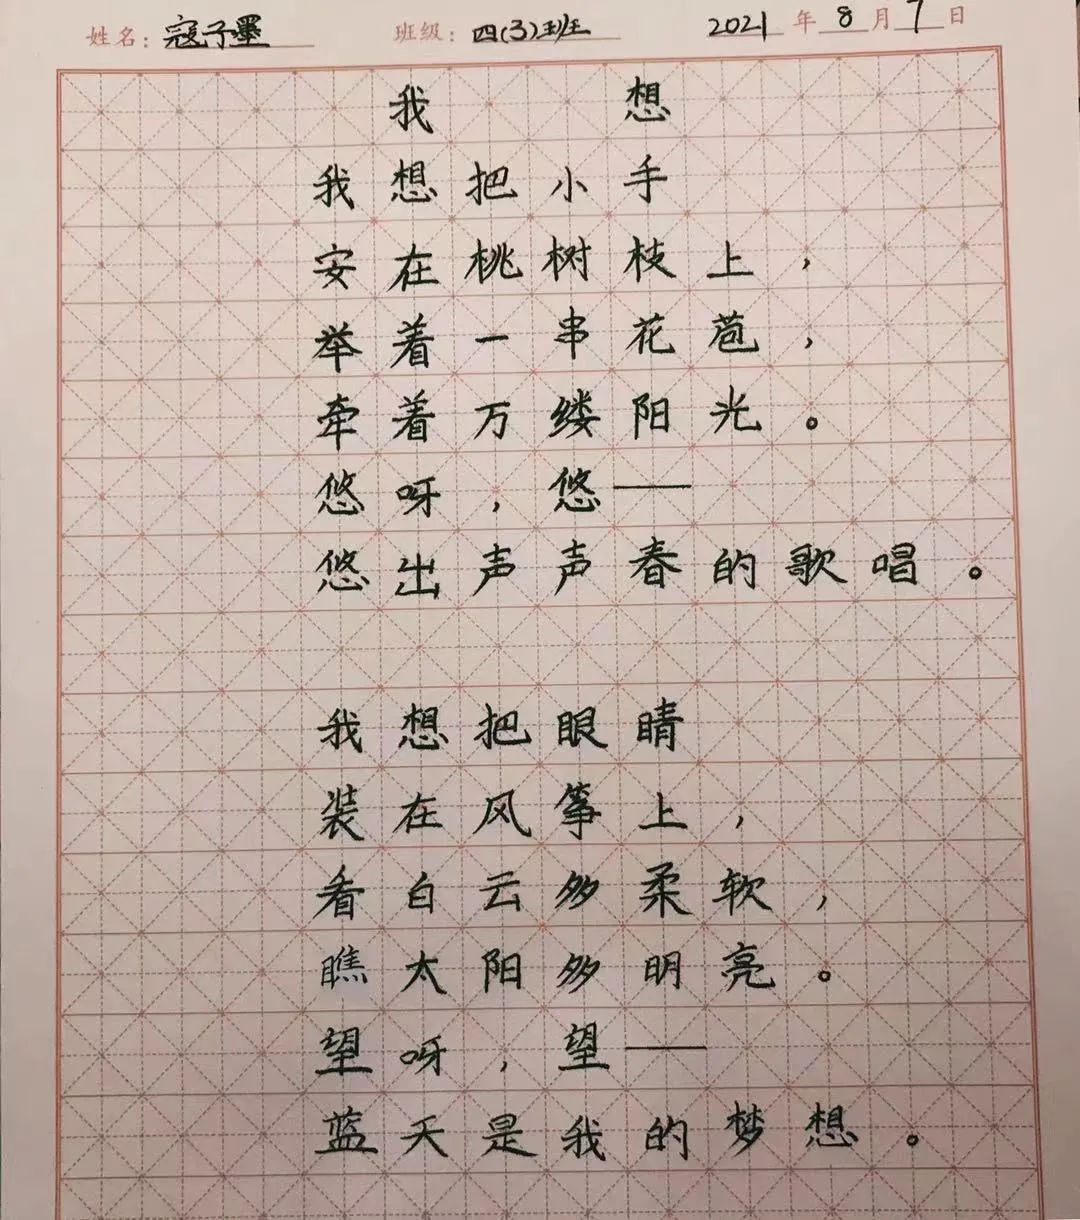 姓名：寇子墨 班级：四(3)班 2021年8月7日
我想
我想把小手
安在桃树枝上，
举着一串花苞，
牵着万缕阳光。
悠呀，悠——
悠出声声春的歌唱。
我想把眼睛
装在风筝上，
看白云多柔软，
瞧太阳多明亮。
望呀，望——
蓝天是我的梦想。